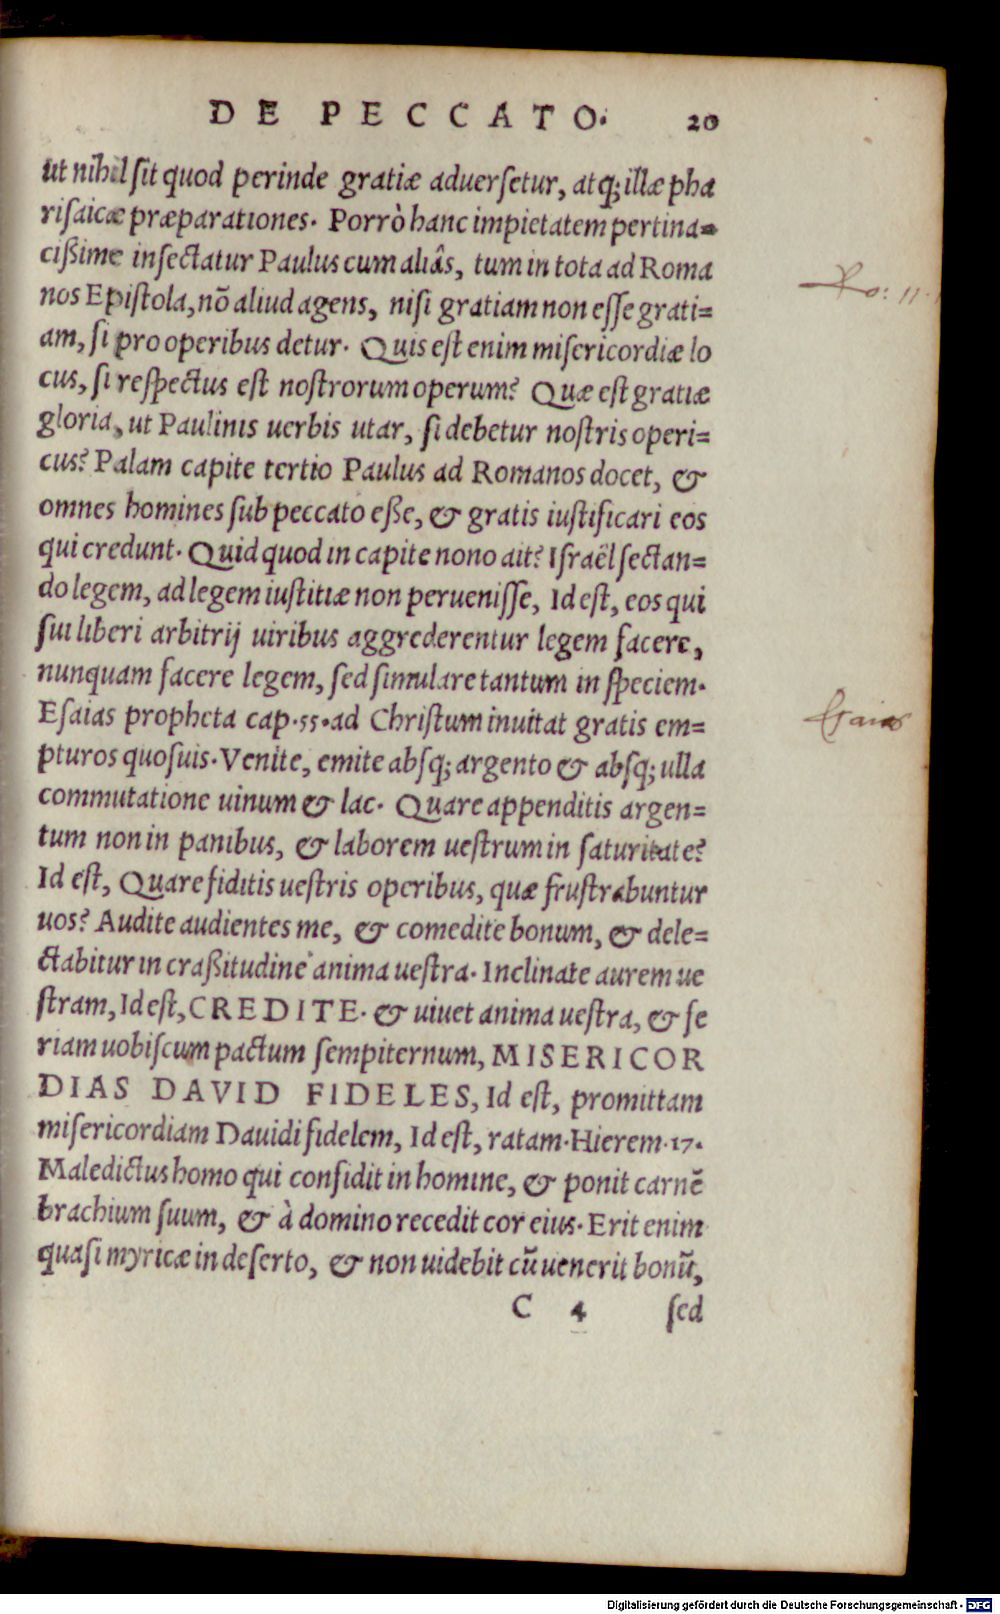 DE PECCATO. 20
ut nihil sit quod perinde gratiæ aduersetur, atq; illæ pha
risaicæ præparationes. Porrò hanc impietatem pertina=
cißime insectatur Paulus cum aliâs, tum in tota ad Roma
nos Epistola, nõ aliud agens, nisi gratiam non esse grati=
am, si pro operibus detur. Quis est enim misericordiæ lo
cus, si respectus est nostrorum operum? Quæ est gratiæ
gloria, ut Paulinis uerbis utar, si debetur nostris operi=
cus? Palam capite tertio Paulus ad Romanos docet, &
omnes homines sub peccato eße, & gratis iustificari eos
qui credunt. Quid quod in capite nono ait? Israël sectan=
do legem, ad legem iustitiæ non peruenisse, Id est, eos qui
sui liberi arbitrij uiribus aggrederentur legem facere,
nunquam facere legem, sed simulare tantum in speciem.
Esaias propheta cap.55.ad Christum inuitat gratis em=
pturos quosuis. Venite, emite absq; argento & absq; ulla
commutatione uinum & lac. Quare appenditis argen=
tum non in panibus, & laborem uestrum in saturitate?
Id est, Quare fiditis uestris operibus, quæ frustrabuntur
uos? Audite audientes me, & comedite bonum, & dele=
ctabitur in craßitudine anima uestra. Inclinate aurem ue
stram, Id est, CREDITE. & uiuet anima uestra, & fe
riam uobiscum pactum sempiternum, MISERICOR
DIAS DAVID FIDELES, Id est, promittam
misericordiam Dauidi fidelem, Id est, ratam. Hierem.17.
Maledictus homo qui confidit in homine, & ponit carnẽ
brachium suum, & à domino recedit cor eius. Erit enim
quasi myricæ in deserto, & non uidebit cũ uenerit bonũ,
C 4 sed
Ro: 11.
Esaias
Digitalisierung gefördert durch die Deutsche Forschungsgemeinschaft - DFG